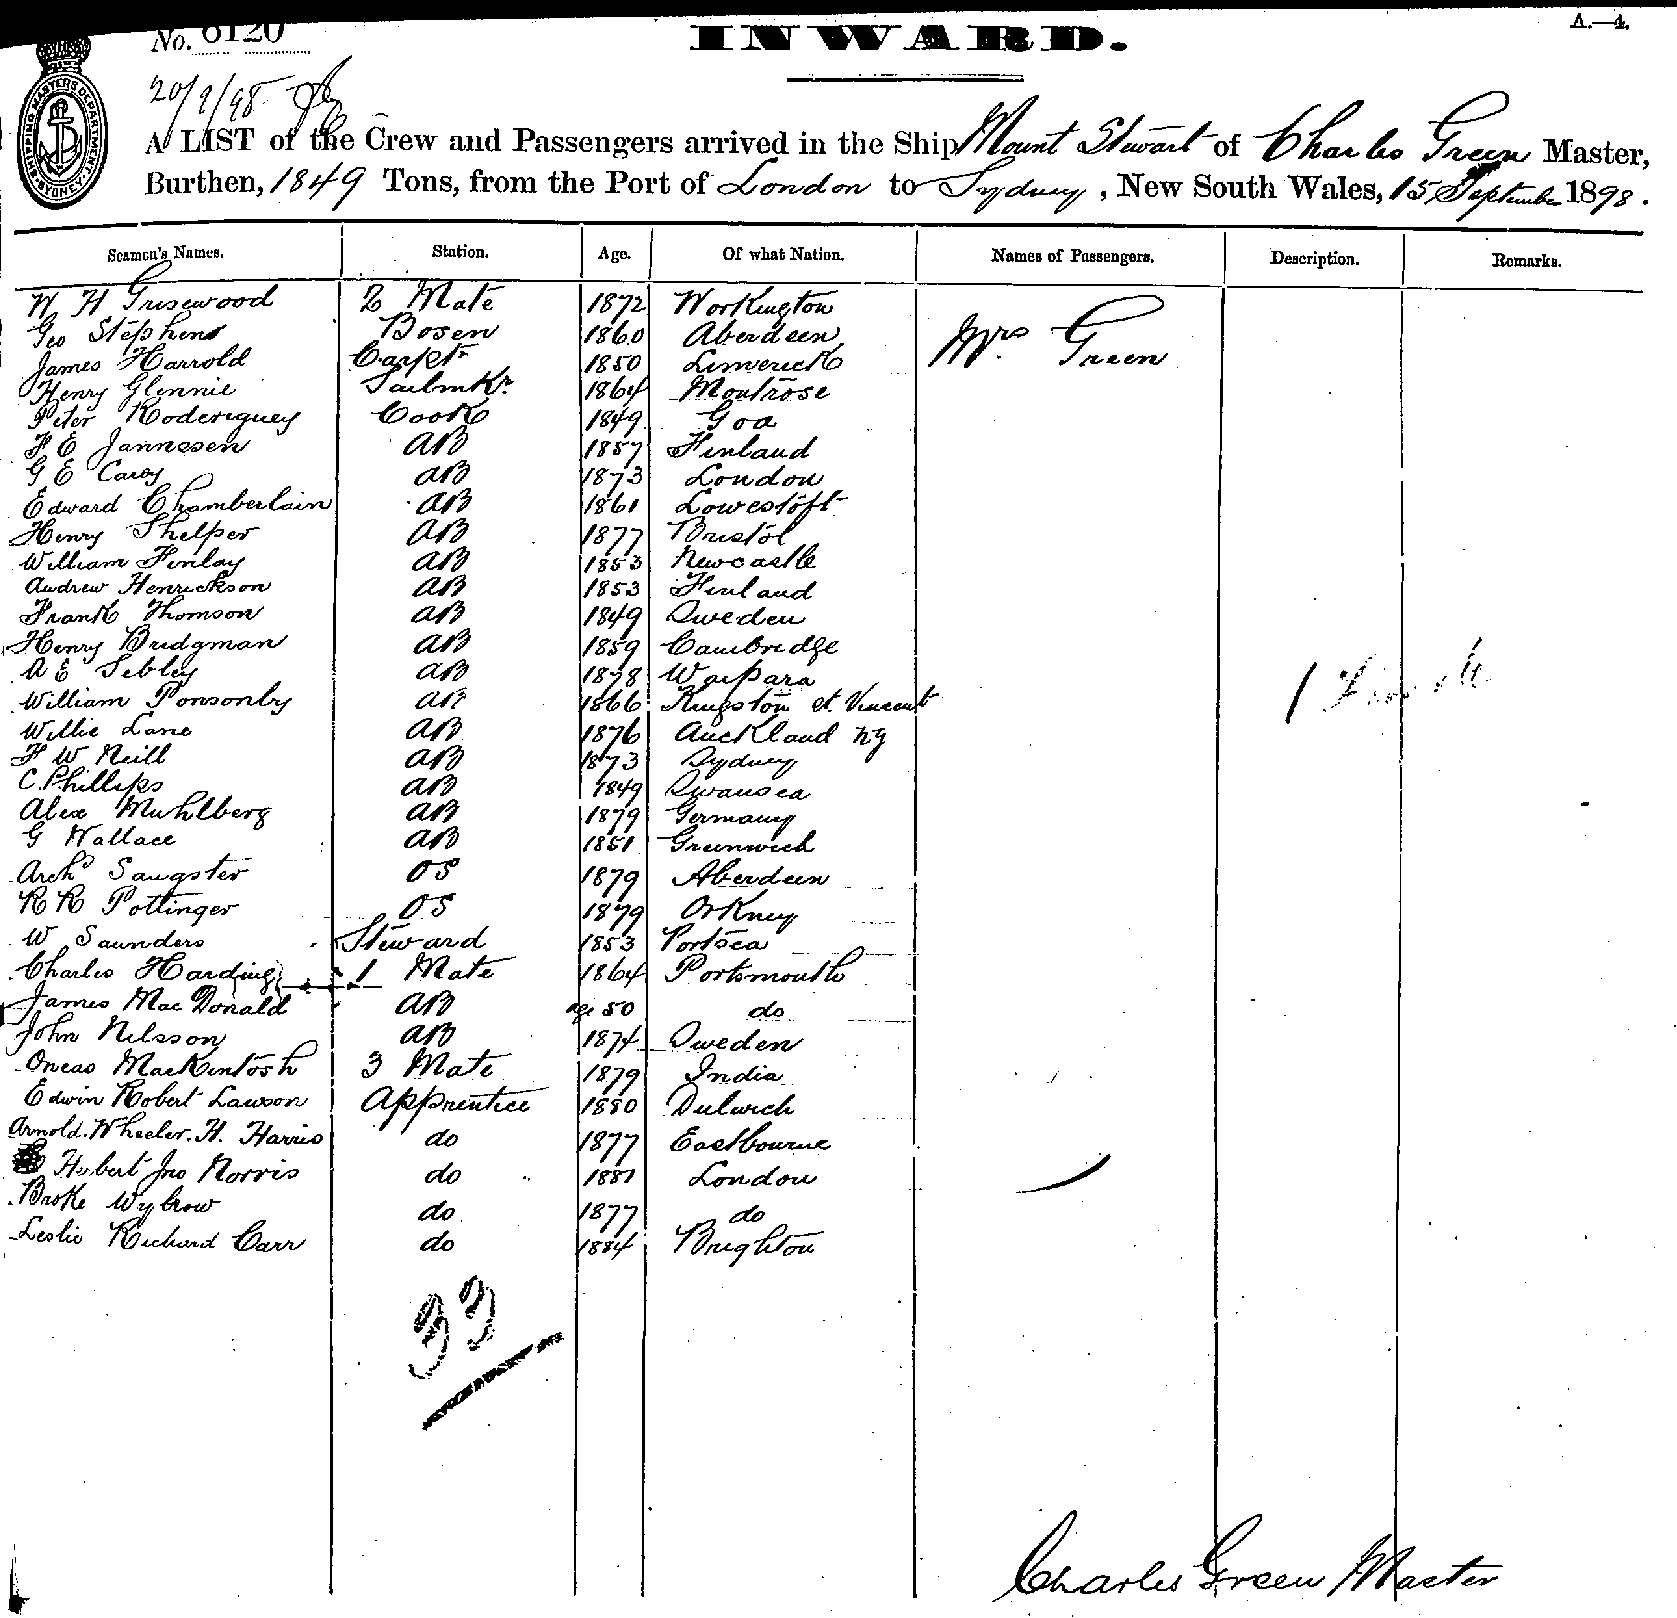 No. 6120
INWARD.
A.—4.
SHIPPING MASTER'S DEPARTMENT SYDNEY
20/9/98
A LIST of the Crew and Passengers arrived in the Ship Mount Stewart of Charles Green Master,
Burthen, 1849 Tons, from the Port of London to Sydney, New South Wales, 15 September 1898.
Seamen's Names. Station. Age. Of what Nation. Names of Passengers. Description. Remarks.
W H Grisewood 2 Mate 1872 Workington
Geo Stephens Bosen 1860 Aberdeen Mrs Green
James Harrold Carptr 1850 Limerick
Henry Glennie Sailmkr 1864 Montrose
Peter Roderiguey Cook 1849 Goa
F E Jannesen AB 1857 Finland
G E Carey AB 1873 London
Edward Chamberlain AB 1861 Lowestoft
Henry Shelper AB 1877 Bristol
William Finlay AB 1853 Newcastle
Andrew Henrickson AB 1853 Finland
Frank Thomson AB 1849 Sweden
Henry Bridgman AB 1859 Cambridge
A E Sebley AB 1878 Waipara
William Ponsonby AB 1866 Kingston St. Vincent
Willie Lane AB 1876 Auckland NZ
F W Neill AB 1873 Sydney
C. Phillips AB 1849 Swansea
Alex Muhlberg AB 1879 Germany
G Wallace AB 1851 Greenwich
Archd Sangster OS 1879 Aberdeen
R R Pottinger OS 1879 Orkney
W Saunders Steward 1853 Portsea
Charles Harding 1 Mate 1864 Portsmouth
James MacDonald AB age 50 do
John Nilsson AB 1874 Sweden
Oneas MacKintosh 3 Mate 1879 India
Edwin Robert Lawson Apprentice 1880 Dulwich
Arnold. Wheeler. H. Harris do 1877 Eastbourne
Hubert Jno Norris do 1881 London
Broke Wybrow do 1877 do
Leslie Richard Carr do 1884 Brighton
33
Charles Green Master